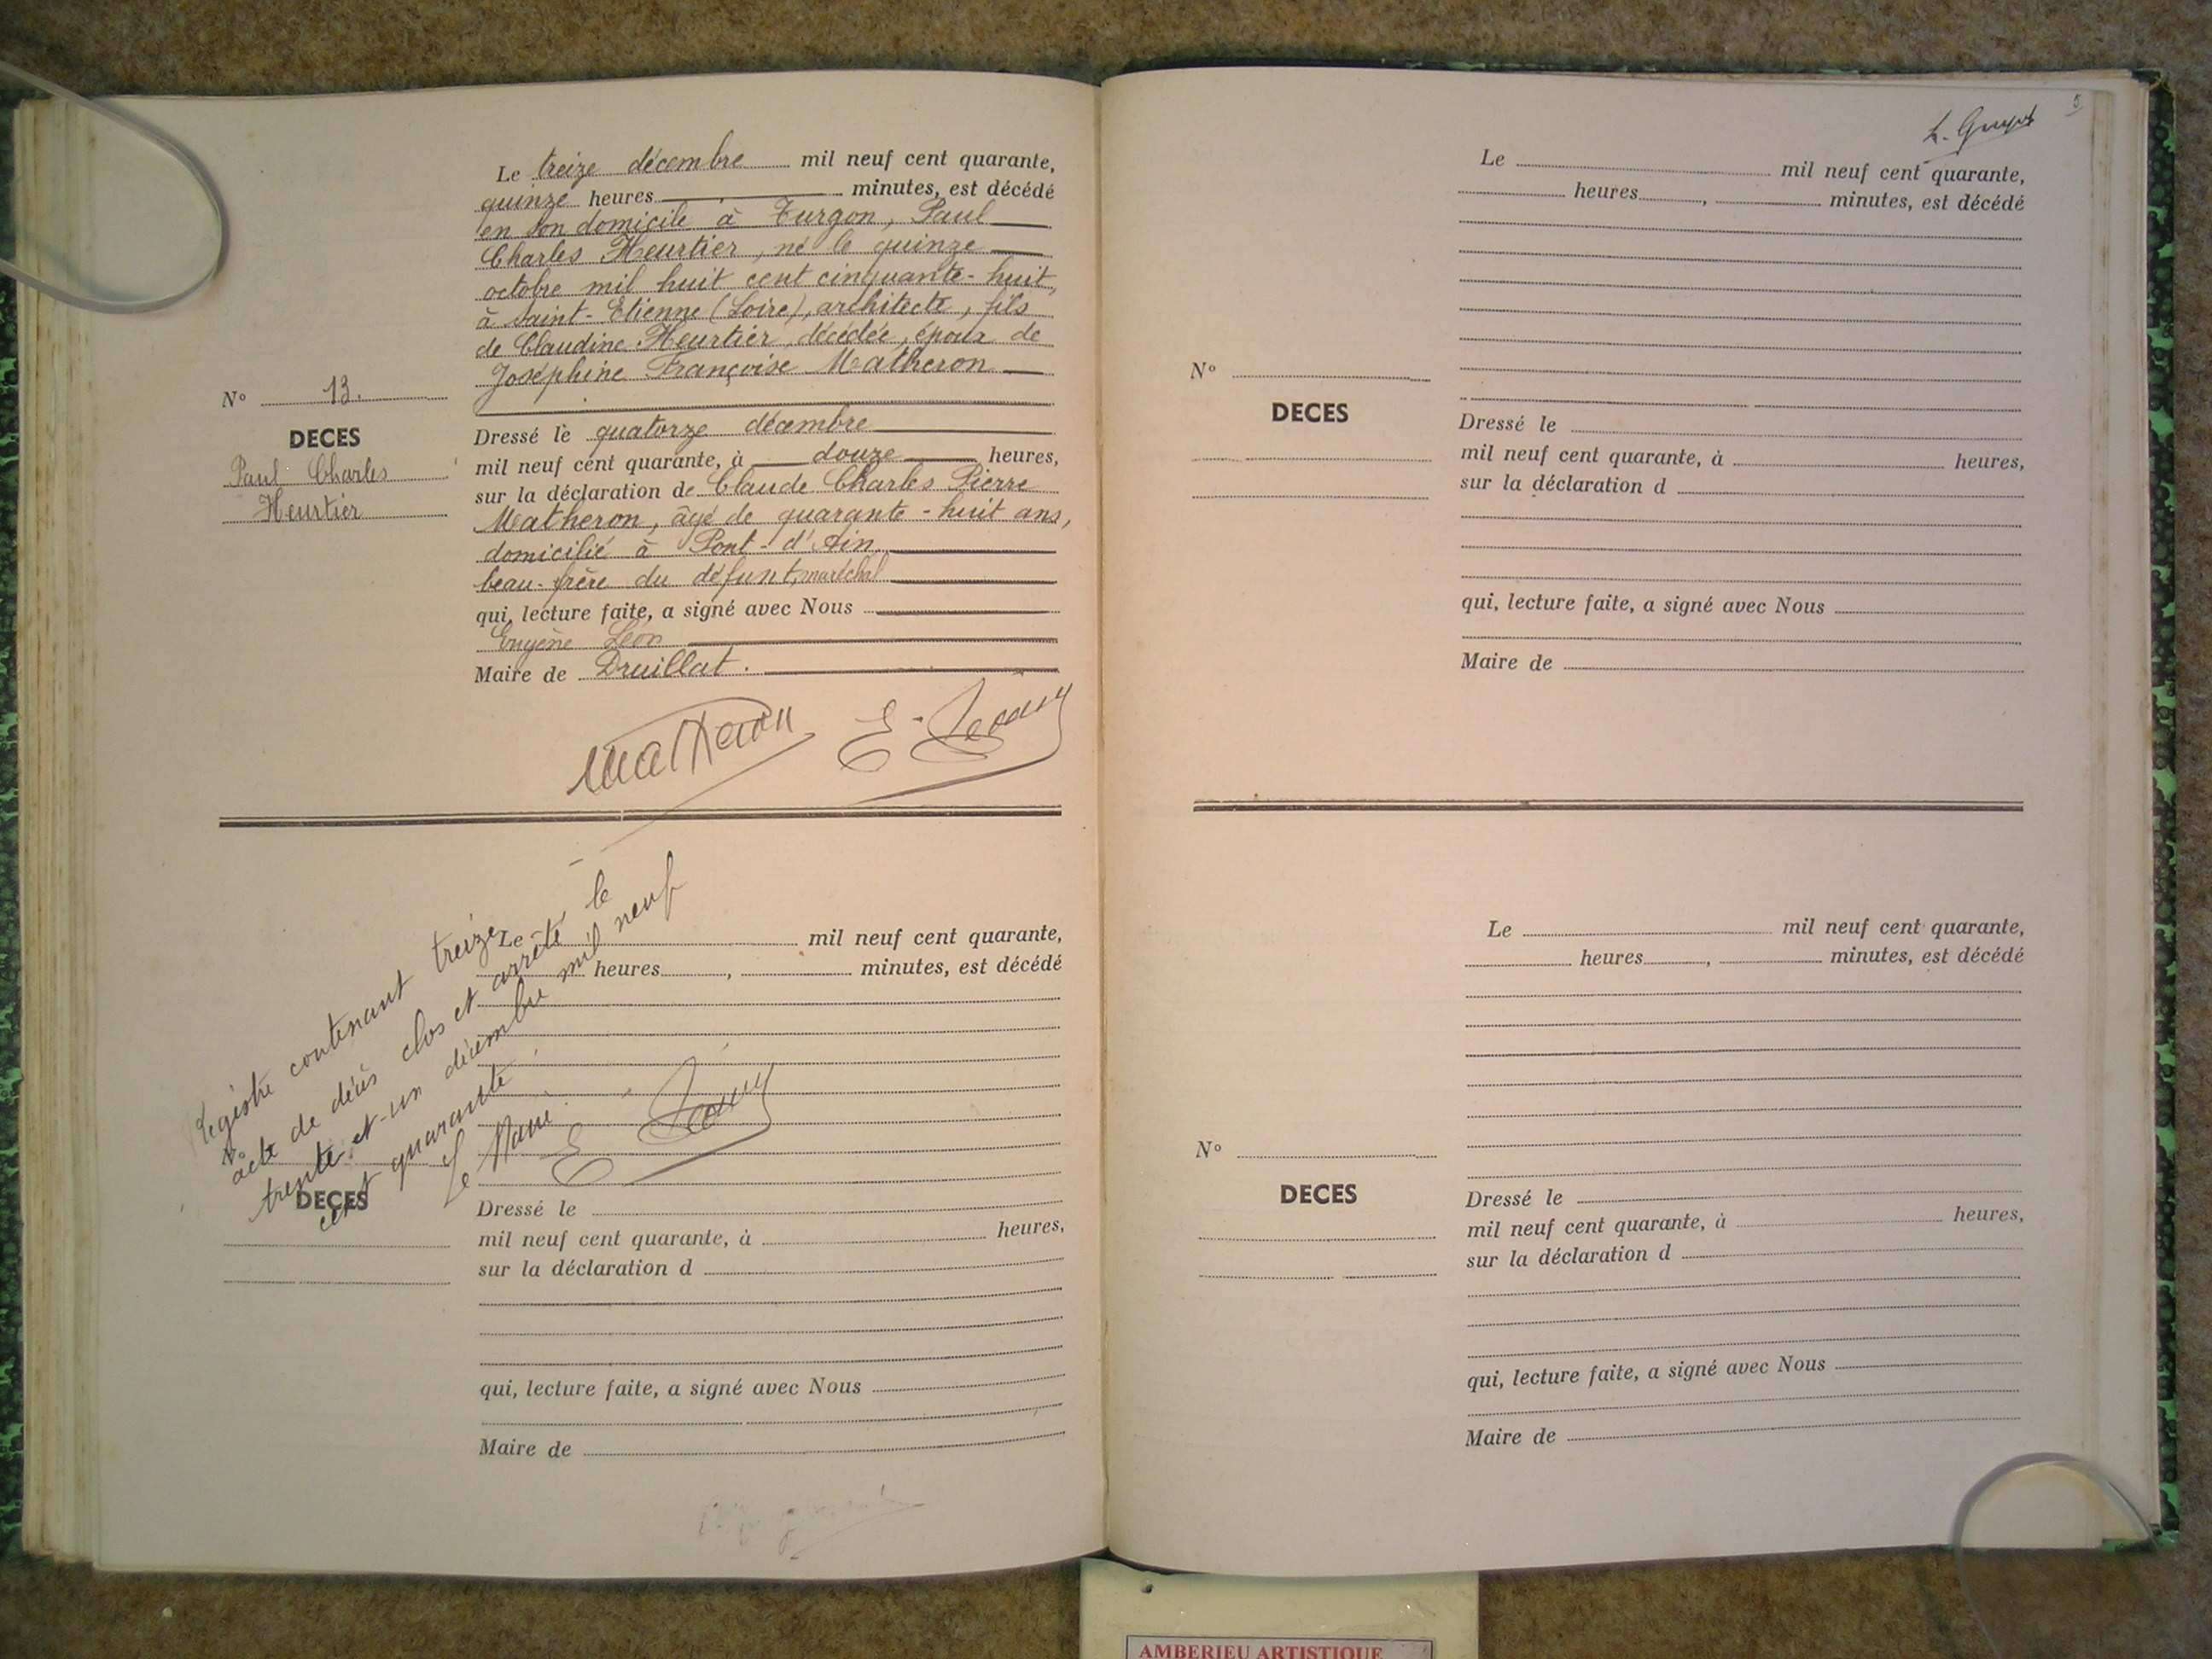 Le treize décembre mil neuf cent quarante,
quinze heures minutes, est décédé
en son domicile à Turgon, Paul
Charles Heurtier, né le quinze
octobre mil huit cent cinquante-huit,
à Saint-Etienne (Loire), architecte, fils
de Claudine Heurtier, décédée, époux de
Joséphine Françoise Matheron
N° 13.
DECES
Paul Charles
Heurtier
Dressé le quatorze décembre
mil neuf cent quarante, à douze heures,
sur la déclaration de Claude Charles Pierre
Matheron, âgé de quarante-huit ans,
domicilié à Pont-d'Ain,
beau-frère du défunt, maréchal
qui, lecture faite, a signé avec Nous
Eugène Léon
Maire de Druillat.
Matheron
Registre contenant treize
acte de décès clos et arrêté le
trente-et-un décembre mil neuf
cent quarante.
Le Maire
Le mil neuf cent quarante,
heures , minutes, est décédé
N°
DECES
Dressé le
mil neuf cent quarante, à heures,
sur la déclaration d
qui, lecture faite, a signé avec Nous
Maire de
5
Le mil neuf cent quarante,
heures , minutes, est décédé
N°
DECES
Dressé le
mil neuf cent quarante, à heures,
sur la déclaration d
qui, lecture faite, a signé avec Nous
Maire de
Le mil neuf cent quarante,
heures , minutes, est décédé
N°
DECES
Dressé le
mil neuf cent quarante, à heures,
sur la déclaration d
qui, lecture faite, a signé avec Nous
Maire de
AMBERIEU ARTISTIQUE